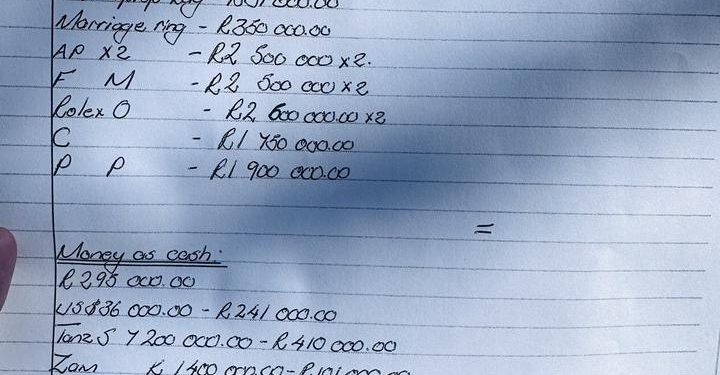 Marriage ring - R350 000.00
AP x2 - R2 500 000 x2.
F M - R2 500 000 x2
Rolex O - R2 600 000.00 x2
C - R1 750 000.00
P P - R1 900 000.00
=
Money as cash:
R295 000.00
US $36 000.00 - R241 000.00
Tanz S 7 200 000.00 - R410 000.00
Zam K 1400